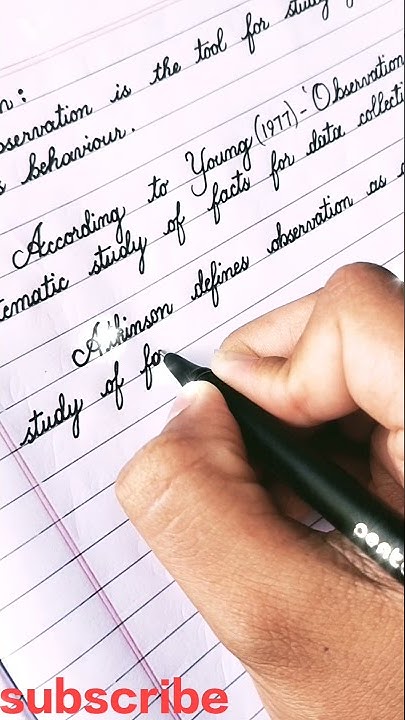 n:
bservation is the tool for study
s behaviour.
According to Young (1977)-'Observation
tematic study of facts for data collecti
Atkinson defines observation as
study of fa
pent
subscribe